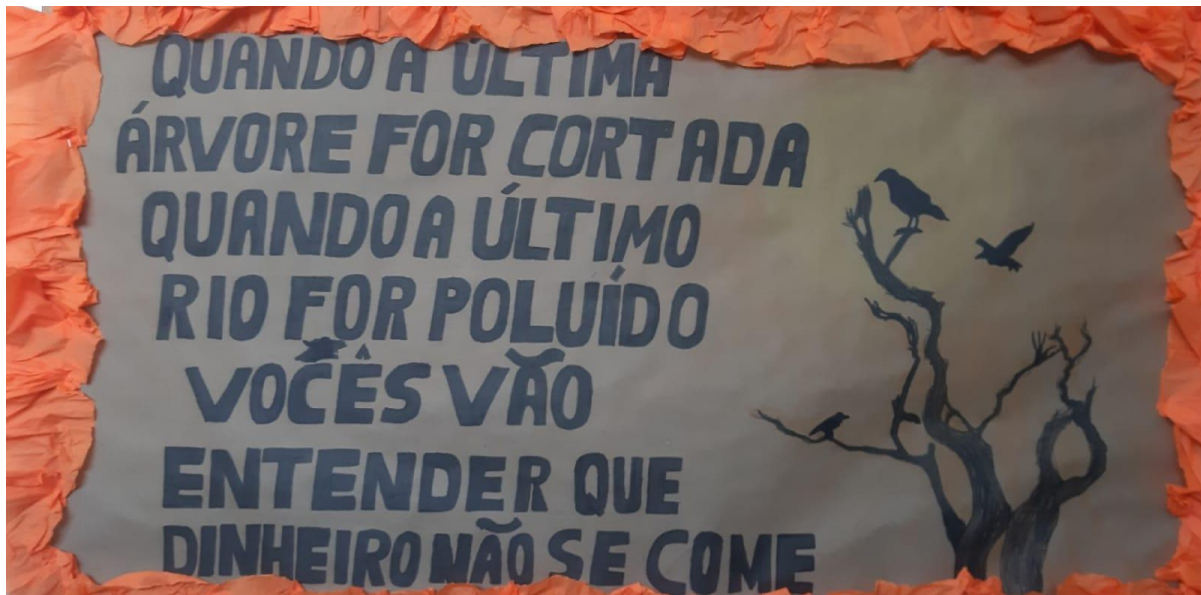 QUANDO A ÚLTIMA
ÁRVORE FOR CORTADA
QUANDO A ÚLTIMO
RIO FOR POLUÍDO
VOCÊS VÃO
ENTENDER QUE
DINHEIRO NÃO SE COME